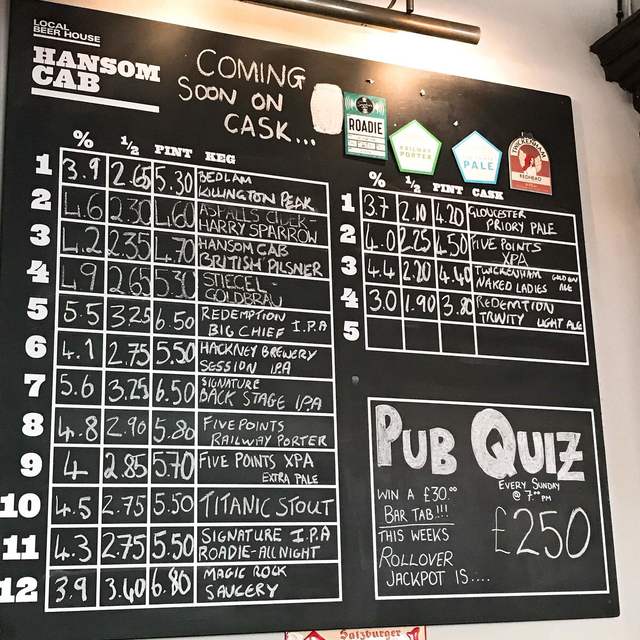 LOCAL
BEER HOUSE
HANSOM
CAB
COMING
SOON ON
CASK...
ROADIE
RAILWAY
PORTER
PALE
TWICKENHAM
REDHEAD
% 1/2 PINT KEG
1 3.9 2.65 5.30 BEDLAM
KILLINGTON PEAK
2 4.6 2.30 4.60 ASPALLS CIDER -
HARRY SPARROW
3 4.2 2.35 4.70 HANSOM CAB
BRITISH PILSNER
4 4.9 2.65 5.30 STIEGEL-
GOLDBRAU
5 5.5 3.25 6.50 REDEMPTION
BIG CHIEF I.P.A
6 4.1 2.75 5.50 HACKNEY BREWERY
SESSION IPA
7 5.6 3.25 6.50 SIGNATURE
BACK STAGE IPA
8 4.8 2.90 5.80 FIVE POINTS
RAILWAY PORTER
9 4 2.85 5.70 FIVE POINTS XPA
EXTRA PALE
10 4.5 2.75 5.50 TITANIC STOUT
11 4.3 2.75 5.50 SIGNATURE I.P.A
ROADIE-ALL NIGHT
12 3.9 3.40 6.80 MAGIC ROCK
SAUCERY
% 1/2 PINT CASK
1 3.7 2.10 4.20 GLOUCESTER
PRIORY PALE
2 4.0 2.25 4.50 FIVE POINTS
XPA
3 4.4 2.20 4.40 TWICKENHAM GOLDEN
NAKED LADIES ALE
4 3.0 1.90 3.80 REDEMTION
TRINITY LIGHT ALE
5
PUB QUIZ
EVERY SUNDAY
@ 7.00 PM
WIN A £30.00
BAR TAB!!!
THIS WEEKS
ROLLOVER
JACKPOT IS....
£250
Salzburger